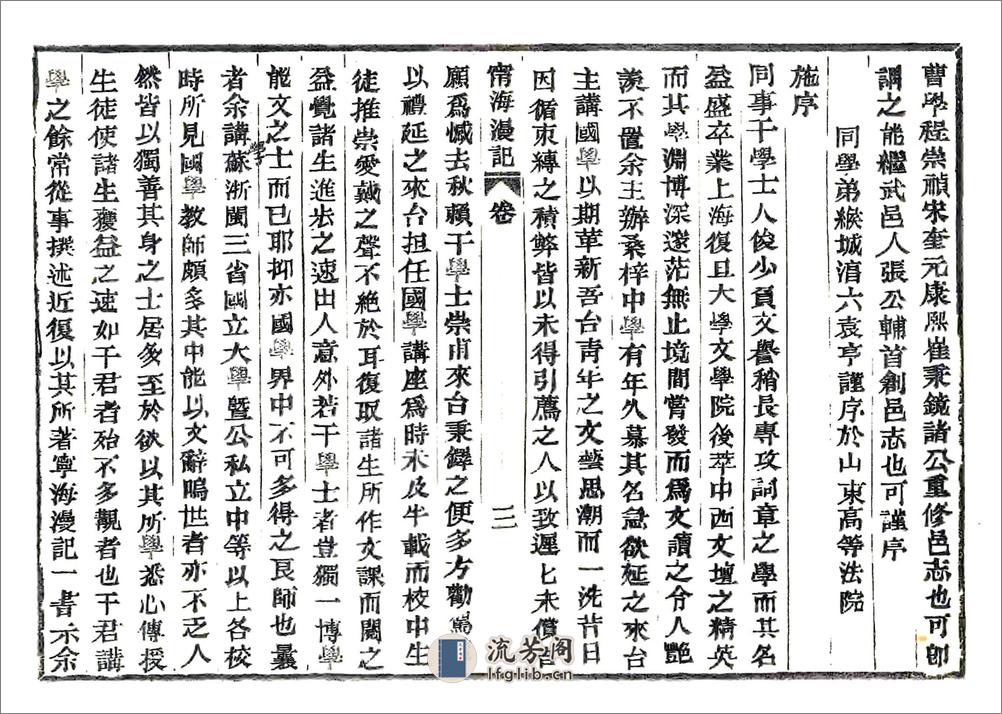 曹學程崇禎宋奎元康熙崔秉鏡諸公重修邑志也可卽
謂之能繼武邑人張公輔首創邑志也可謹序
同學弟緱城涓六袁亨謹序於山東高等法院
施序
同事干學士人俊少負文譽稍長專攻詞章之學而其名
益盛卒業上海復旦大學文學院後萃中西文壇之精英
而其學淵博深邃茫無止境間嘗發而爲文讀之令人艷
羨不置余主辦桑梓中學有年久慕其名急欲延之來台
主講國學以期革新吾台靑年之文藝思潮而一洗昔日
因循束縛之積弊皆以未得引薦之人以致遲匕未償
甯海漫記 卷 三
願爲憾去秋賴干學士崇甫來台秉鐸之便多方勸
以禮延之來台担任國學講座爲時未及半載而校中生
徒推崇愛戴之聲不絕於耳復取諸生所作文課而閱之
益覺諸生進步之速出人意外若干學士者豈獨一博學
能文之士而已耶抑亦國學界中不可多得之良師也曩
者余講學蘇浙閩三省國立大學曁公私立中等以上各校
時所見國學教師頗多其中能以文辭鳴世者亦不乏人
然皆以獨善其身之士居多至於欲以其所學悉心傳授
生徒使諸生獲益之速如干君者殆不多覯者也干君講
學之餘常從事撰述近復以其所著寧海漫記一書示余
流芳阁
lfglib.cn